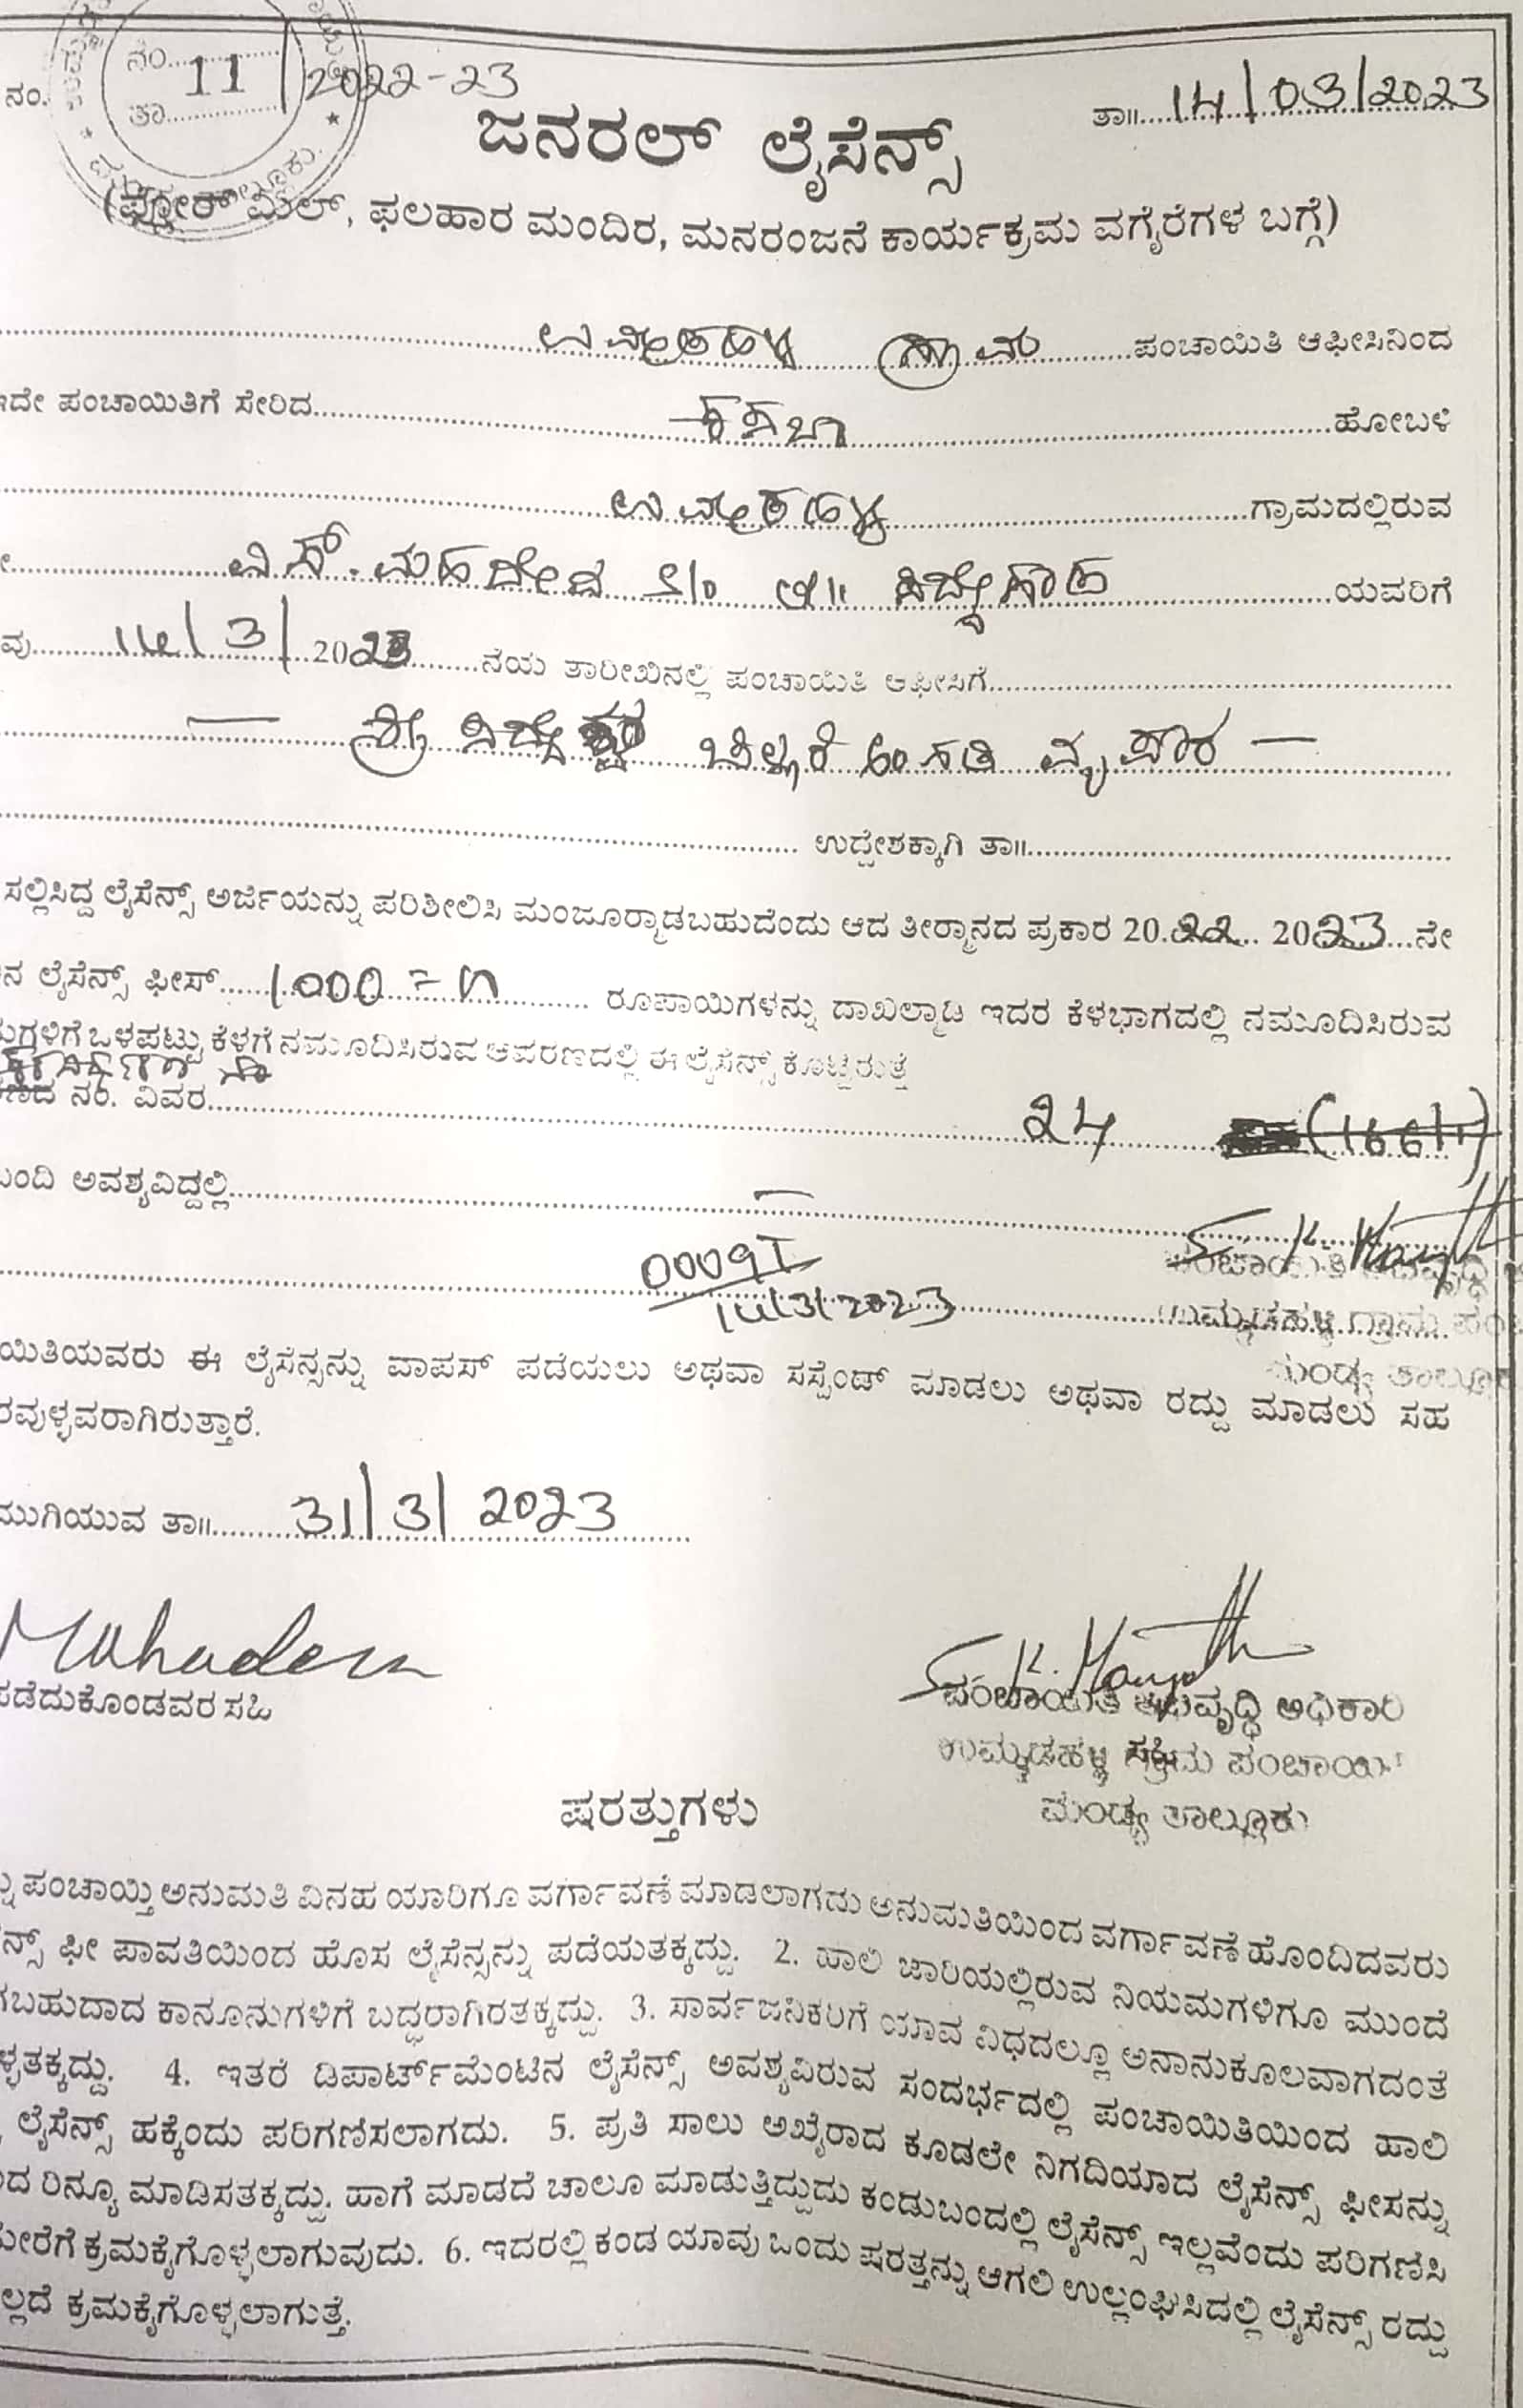 ನಂ. 11/2022-23
ನಂ............
ತಾ............
ತಾ॥ 14/03/2023
ಜನರಲ್ ಲೈಸೆನ್ಸ್
(ಫ್ಲೋರ್ ಮಿಲ್, ಫಲಹಾರ ಮಂದಿರ, ಮನರಂಜನೆ ಕಾರ್ಯಕ್ರಮ ವಗೈರೆಗಳ ಬಗ್ಗೆ)
ಉಮ್ಮಡಹಳ್ಳಿ ಗ್ರಾಮ ಪಂಚಾಯಿತಿ ಆಫೀಸಿನಿಂದ
ಇದೇ ಪಂಚಾಯಿತಿಗೆ ಸೇರಿದ ಕಸಬಾ ಹೋಬಳಿ
ಉಮ್ಮಡಹಳ್ಳಿ ಗ್ರಾಮದಲ್ಲಿರುವ
ಎಸ್. ಮಹದೇವ S/o ಲೇ॥ ಯವರಿಗೆ
ವು 14/3/2023 ನೆಯ ತಾರೀಖಿನಲ್ಲಿ ಪಂಚಾಯಿತಿ ಆಫೀಸಿಗೆ
— ಶ್ರೀ ಚಿಲ್ಲರೆ ಅಂಗಡಿ ವ್ಯಪಾರ —
ಉದ್ದೇಶಕ್ಕಾಗಿ ತಾ॥
ಸಲ್ಲಿಸಿದ್ದ ಲೈಸೆನ್ಸ್ ಅರ್ಜಿಯನ್ನು ಪರಿಶೀಲಿಸಿ ಮಂಜೂರ್ಮಾಡಬಹುದೆಂದು ಆದ ತೀರ್ಮಾನದ ಪ್ರಕಾರ 2022 2023 ನೇ
ನ ಲೈಸೆನ್ಸ್ ಫೀಸ್ 1000=00 ರೂಪಾಯಿಗಳನ್ನು ದಾಖಲ್ಮಾಡಿ ಇದರ ಕೆಳಭಾಗದಲ್ಲಿ ನಮೂದಿಸಿರುವ
ಗಳಿಗೆ ಒಳಪಟ್ಟು ಕೆಳಗೆ ನಮೂದಿಸಿರುವ ಆವರಣದಲ್ಲಿ ಈ ಲೈಸೆನ್ಸ್ ಕೊಟ್ಟಿರುತ್ತೆ
ನಂ. ವಿವರ 24 (166/1)
ಬಂದಿ ಅವಶ್ಯವಿದ್ದಲ್ಲಿ —
S. K. Manjunath
00091
14/3/2023
ಪಂಚಾಯಿತಿ ಅಭಿವೃದ್ಧಿ
ಉಮ್ಮಡಹಳ್ಳಿ ಗ್ರಾಮ ಪಂಚಾ
ಮಂಡ್ಯ ತಾಲ್ಲೂಕು
ಯಿತಿಯವರು ಈ ಲೈಸೆನ್ಸನ್ನು ವಾಪಸ್ ಪಡೆಯಲು ಅಥವಾ ಸಸ್ಪೆಂಡ್ ಮಾಡಲು ಅಥವಾ ರದ್ದು ಮಾಡಲು ಸಹ
ರವುಳ್ಳವರಾಗಿರುತ್ತಾರೆ.
ಮುಗಿಯುವ ತಾ॥ 31/3/2023
Mahadeva
ಪಡೆದುಕೊಂಡವರ ಸಹಿ
S. K. Manjunath
ಪಂಚಾಯಿತಿ ಅಭಿವೃದ್ಧಿ ಅಧಿಕಾರಿ
ಉಮ್ಮಡಹಳ್ಳಿ ಗ್ರಾಮ ಪಂಚಾಯಿತಿ
ಸಹಿ
ಮಂಡ್ಯ ತಾಲ್ಲೂಕು
ಷರತ್ತುಗಳು
ಪಂಚಾಯ್ತಿ ಅನುಮತಿ ವಿನಹ ಯಾರಿಗೂ ವರ್ಗಾವಣೆ ಮಾಡಲಾಗದು ಅನುಮತಿಯಿಂದ ವರ್ಗಾವಣೆ ಹೊಂದಿದವರು
ನ್ಸ್ ಫೀ ಪಾವತಿಯಿಂದ ಹೊಸ ಲೈಸೆನ್ಸನ್ನು ಪಡೆಯತಕ್ಕದ್ದು. 2. ಹಾಲಿ ಜಾರಿಯಲ್ಲಿರುವ ನಿಯಮಗಳಿಗೂ ಮುಂದೆ
ಗಬಹುದಾದ ಕಾನೂನುಗಳಿಗೆ ಬದ್ಧರಾಗಿರತಕ್ಕದ್ದು. 3. ಸಾರ್ವಜನಿಕರಿಗೆ ಯಾವ ವಿಧದಲ್ಲೂ ಅನಾನುಕೂಲವಾಗದಂತೆ
ಳ್ಳತಕ್ಕದ್ದು. 4. ಇತರೆ ಡಿಪಾರ್ಟ್‌ಮೆಂಟಿನ ಲೈಸೆನ್ಸ್ ಅವಶ್ಯವಿರುವ ಸಂದರ್ಭದಲ್ಲಿ ಪಂಚಾಯಿತಿಯಿಂದ ಹಾಲಿ
ಲೈಸೆನ್ಸ್ ಹಕ್ಕೆಂದು ಪರಿಗಣಿಸಲಾಗದು. 5. ಪ್ರತಿ ಸಾಲು ಅಖೈರಾದ ಕೂಡಲೇ ನಿಗದಿಯಾದ ಲೈಸೆನ್ಸ್ ಫೀಸನ್ನು
ದ ರಿನ್ಯೂ ಮಾಡಿಸತಕ್ಕದ್ದು. ಹಾಗೆ ಮಾಡದೆ ಚಾಲೂ ಮಾಡುತ್ತಿದ್ದುದು ಕಂಡುಬಂದಲ್ಲಿ ಲೈಸೆನ್ಸ್ ಇಲ್ಲವೆಂದು ಪರಿಗಣಿಸಿ
ಮೇರೆಗೆ ಕ್ರಮಕೈಗೊಳ್ಳಲಾಗುವುದು. 6. ಇದರಲ್ಲಿ ಕಂಡ ಯಾವು ಒಂದು ಷರತ್ತನ್ನು ಆಗಲಿ ಉಲ್ಲಂಘಿಸಿದಲ್ಲಿ ಲೈಸೆನ್ಸ್ ರದ್ದು
ಲ್ಲದೆ ಕ್ರಮಕೈಗೊಳ್ಳಲಾಗುತ್ತೆ.